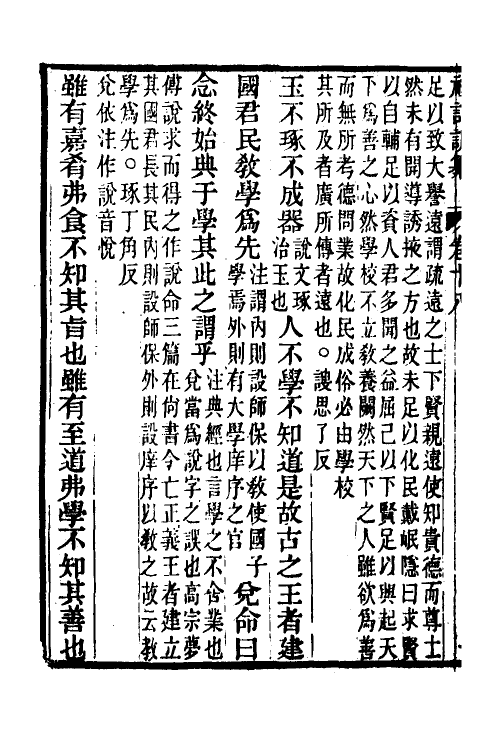 足以致大譽遠謂疏遠之士下賢親遠使知貴德而尊士
然未有開導誘掖之方也故未足以化民戴岷隱曰求賢
以自輔足以資人君多聞之益屈己以下賢足以興起天
下爲善之心然學校不立敎養闕然天下之人雖欲爲善
而無所考德問業故化民成俗必由學校
其所及者廣所傳者遠也。謏思了反
玉不琢不成器說文琢治玉也人不學不知道是故古之王者建
國君民敎學爲先注謂內則設師保以敎使國子學焉外則有大學庠序之官兌命曰
念終始典于學其此之謂乎注典經也言學之不舍業也兌當爲說字之誤也高宗夢
傅說求而得之作說命三篇在尙書今亡正義王者建立
其國君長其民內則設師保外則設庠序以敎之故云敎
學爲先。琢丁角反
兌依注作說音悅
雖有嘉肴弗食不知其旨也雖有至道弗學不知其善也